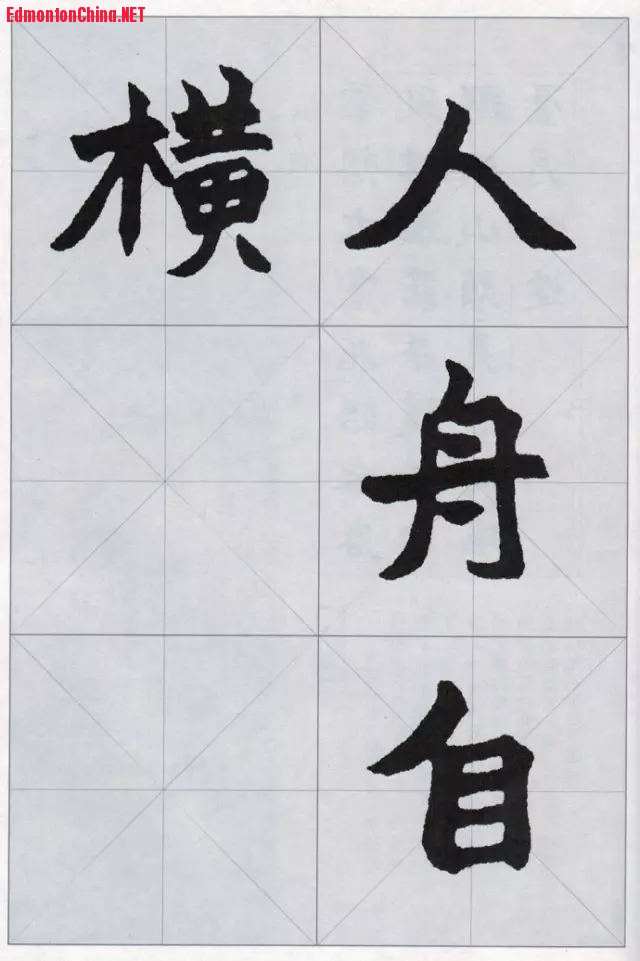 EdmontonChina.NET
人舟自
横